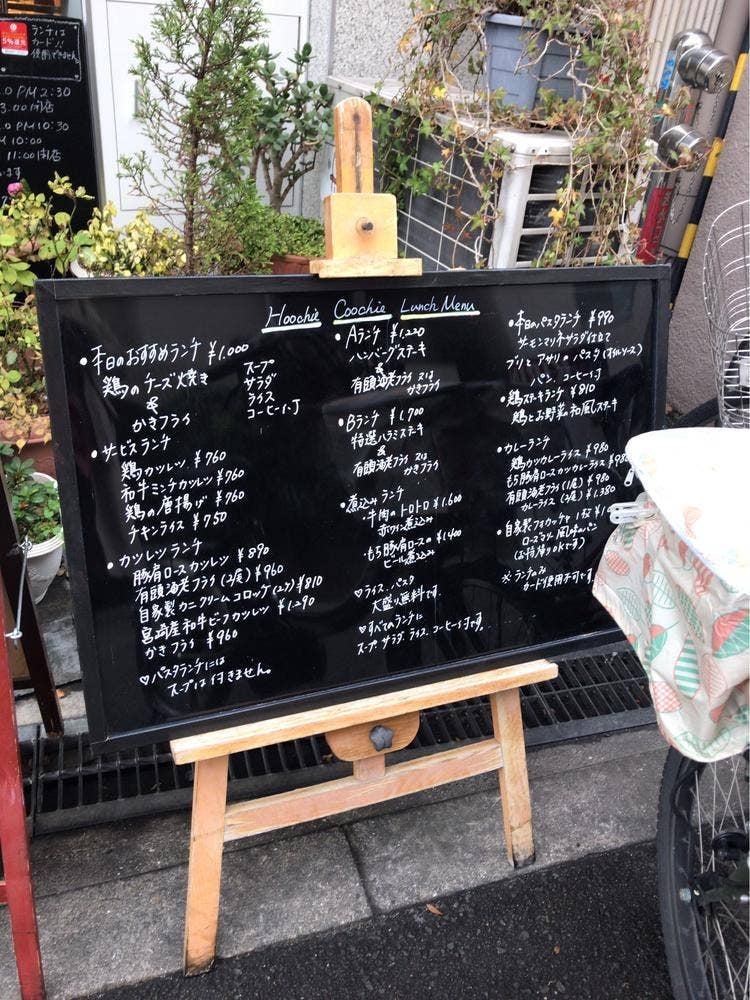 ランチは
カード!!
使用できません。
5%還元
PM2:30
3:00閉店
PM10:30
10:00
11:00閉店
Hoochie Coochie Lunch Menu
・本日のおすすめランチ ¥1.000
鶏のチーズ焼き
&
かきフライ
スープ
サラダ
ライス
コーヒーのJ
・サービスランチ
鶏カツレツ ¥760
和牛ミンチカツレツ ¥760
鶏の唐揚げ ¥760
チキンライス ¥750
・カツレツランチ
豚肩ロースカツレツ ¥890
有頭海老フライ(2尾) ¥960
自家製カニクリームコロッケ(2ケ) ¥810
宮崎産和牛ビーフカツレツ ¥1.290
かきフライ ¥960
♡パスタランチには
スープは付きません。
・Aランチ ¥1.220
ハンバーグステーキ
&
有頭海老フライ 又は
かきフライ
・Bランチ ¥1.700
特選ハラミステーキ
&
有頭海老フライ 又は
かきフライ
・煮込みランチ
・牛肉のトロトロ ¥1.600
赤ワイン煮込み
・もち豚肩ロースの ¥1.400
ビール煮込み
♡ライス、パスタ
大盛り無料です。
♡すべてのランチに
スープ サラダ ライス コーヒー付です。
・本日のパスタランチ ¥990
サーモンマリネサラダ仕立て
ブリとアサリのパスタ(オイルソース)
パン、コーヒー付
・鶏ステーキランチ ¥810
鶏とお野菜の和風ステーキ
・カレーランチ
鶏カツカレーライス ¥980
もち豚肩ロースカツカレーライス ¥980
有頭海老フライ(1尾) ¥980
カレーライス(2尾) ¥1.280
・自家製フォカッチャ 1枚
ローズマリー風味のパン
(お持帰りOKです)
※ランチのみ
カード使用不可です。